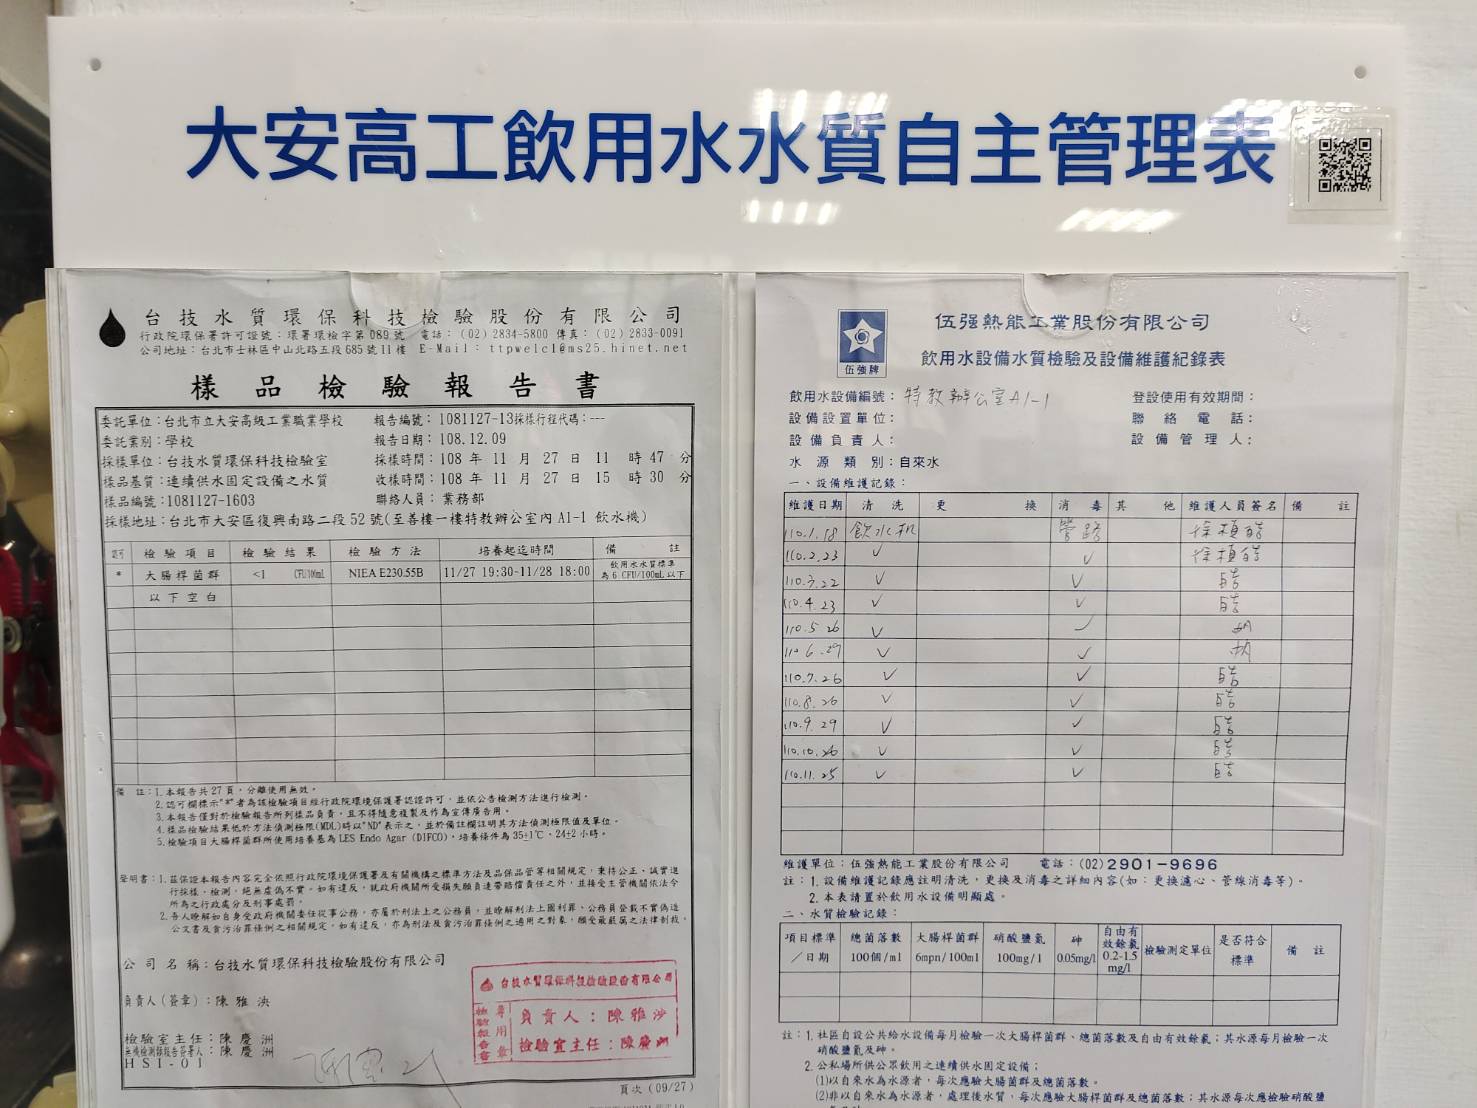 大安高工飲用水水質自主管理表
台技水質環保科技檢驗股份有限公司
行政院環保署許可證號：環署環檢字第089號 電話：(02)2834-5800 傳真：(02)2833-0091
公司地址：台北市士林區中山北路五段685號11樓 E-Mail：ttpwelcl@ms25.hinet.net
樣品檢驗報告書
委託單位：台北市立大安高級工業職業學校 報告編號：1081127-13採樣行程代碼：---
委託業別：學校 報告日期：108.12.09
採樣單位：台技水質環保科技檢驗室 採樣時間：108 年 11 月 27 日 11 時 47 分
樣品基質：連續供水固定設備之水質 收樣時間：108 年 11 月 27 日 15 時 30 分
樣品編號：1081127-1603 聯絡人員：業務部
採樣地址：台北市大安區復興南路二段52號(至善樓一樓特教辦公室內A1-1 飲水機)
檢驗項目 檢驗結果 檢驗方法 培養起迄時間 備註
* 大腸桿菌群 <1 CFU/100mL NIEA E230.55B 11/27 19:30-11/28 18:00 飲用水水質標準
為6 CFU/100mL以下
以下空白
備 註：1.本報告共27頁，分離使用無效。
2.認可欄標示"*"者為該檢驗項目經行政院環境保護署認證許可，並依公告檢測方法進行檢測。
3.本報告僅對於檢驗報告所列樣品負責，且不得隨意複製及作為宣傳廣告用。
4.樣品檢驗結果低於方法偵測極限(MDL)時以"ND"表示之，並於備註欄註明其方法偵測極限值及單位。
5.檢驗項目大腸桿菌群所使用培養基為LES Endo Agar (DIFCO)，培養條件為35±1℃、24±2小時。
聲明書：1.茲保證本報告內容完全依照行政院環境保護署及有關機構之標準方法及品保品管等相關規定，秉持公正、誠實進
行採樣、檢測，絕無虛偽不實，如有違反，就政府機關所受損失願負連帶賠償責任之外，並接受主管機關依法令
所為之行政處分及刑事處罰。
2.吾人瞭解如自身受政府機關委任從事公務，亦屬於刑法上之公務員，並瞭解刑法上圖利罪、公務員登載不實偽造
公文書及貪污治罪條例之相關規定，如有違反，亦為刑法及貪污治罪條例之適用之對象，願受最嚴厲之法律制裁。
公司名稱：台技水質環保科技檢驗股份有限公司
負責人(簽章)：陳雅泱
檢驗室主任：陳慶洲
無機檢測類報告簽署人：陳慶洲
HSI-01
台技水質環保科技檢驗股份有限公司
檢驗報告書專用章
負責人：陳雅泱
檢驗室主任：陳慶洲
頁次 (09/27)
伍強牌
伍強熱能工業股份有限公司
飲用水設備水質檢驗及設備維護紀錄表
飲用水設備編號：特教辦公室A1-1 登設使用有效期間：
設備設置單位： 聯絡電話：
設備負責人： 設備管理人：
水源類別：自來水
一、設備維護記錄：
維護日期 清洗 更換 消毒 其他 維護人員簽名 備註
110.1.18 飲水机 管路
110.2.23 ✓ ✓
110.3.22 ✓ ✓
110.4.23 ✓ ✓
110.5.26 ✓ ✓
110.6.29 ✓ ✓
110.7.26 ✓ ✓
110.8.26 ✓ ✓
110.9.29 ✓ ✓
110.10.26 ✓ ✓
110.11.25 ✓ ✓
維護單位：伍強熱能工業股份有限公司 電話：(02)2901-9696
註：1.設備維護記錄應註明清洗，更換及消毒之詳細內容(如：更換濾心、管線消毒等)。
2.本表請置於飲用水設備明顯處。
二、水質檢驗記錄：
項目標準／日期 總菌落數 100個/ml 大腸桿菌群 6mpn/100ml 硝酸鹽氮 100mg/1 砷 0.05mg/l 自由有效餘氯 0.2-1.5 mg/l 檢驗測定單位 是否符合標準 備註
註：1.社區自設公共給水設備每月檢驗一次大腸桿菌群、總菌落數及自由有效餘氯；其水源每月檢驗一次
硝酸鹽氮及砷。
2.公私場所供公眾飲用之連續供水固定設備；
(1)以自來水為水源者，每次應驗大腸菌群及總菌落數。
(2)非以自來水為水源者，處理後水質，每次應驗大腸桿菌群及總菌落數；其水源每次應檢驗硝酸鹽